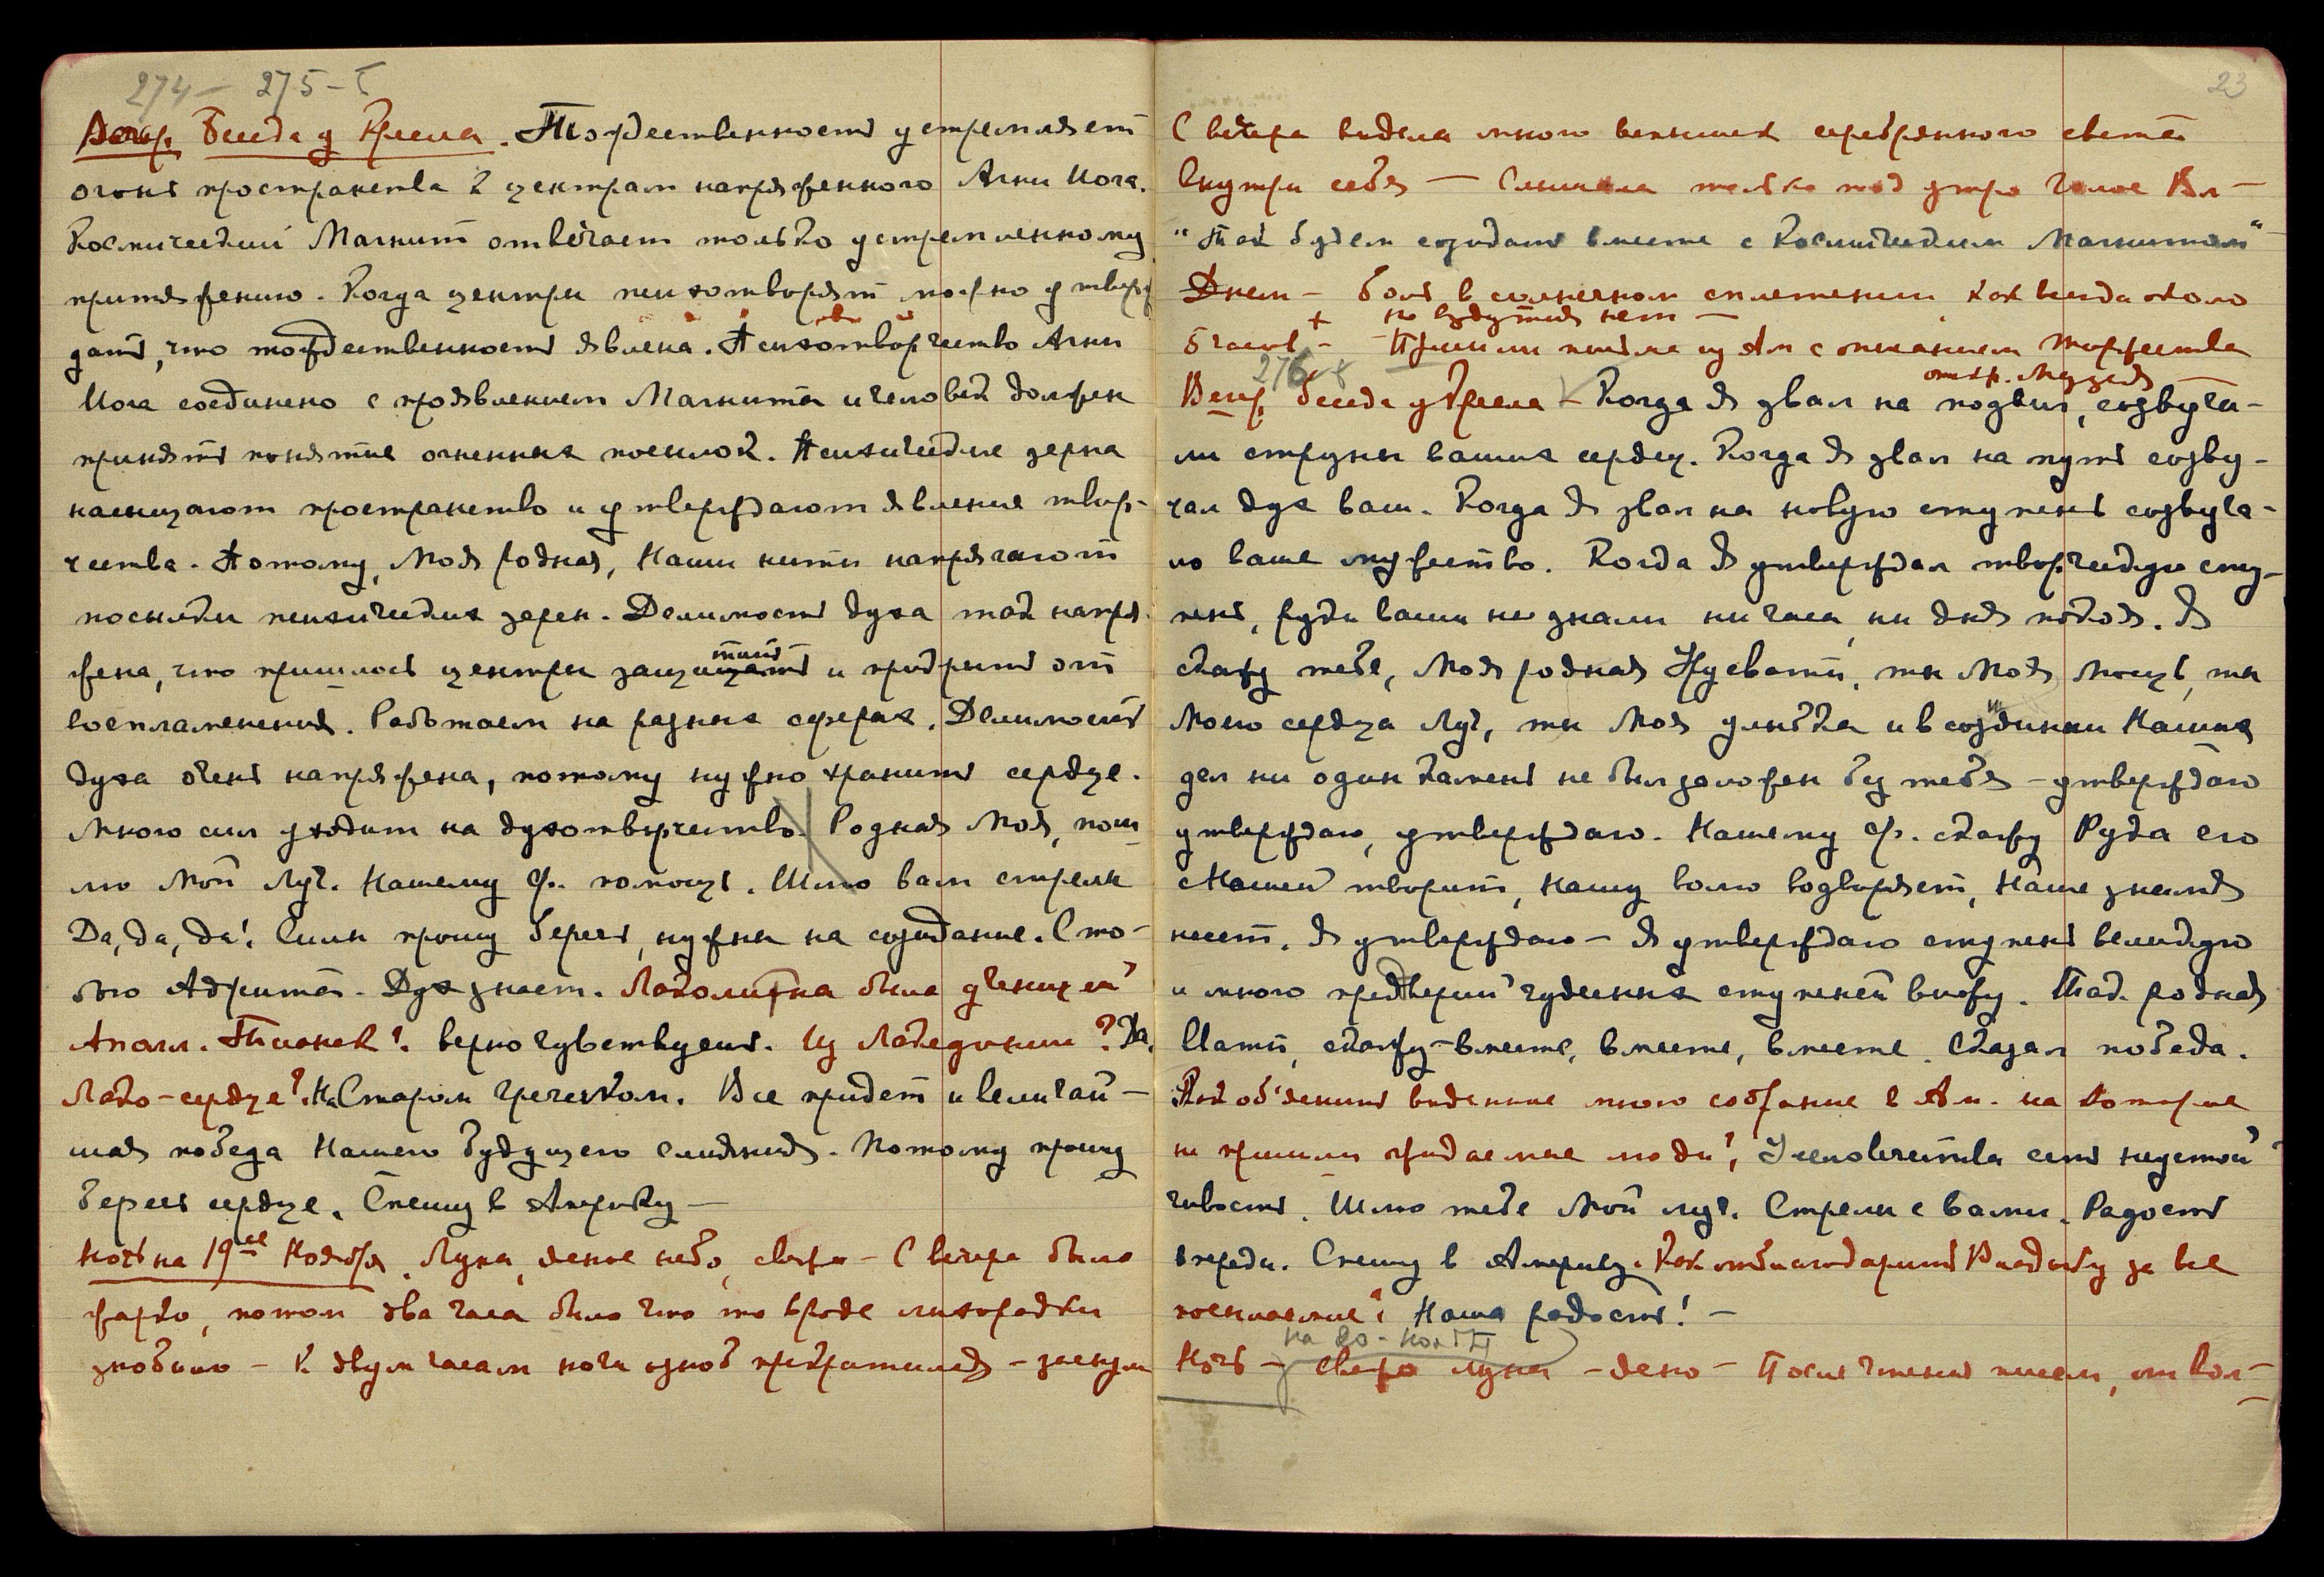 274 – 275 – I
Вечер. Беседа у Кресла. Тождественность устремляет
огонь пространства к центрам напряженного Агни Иога.
Космический Магнит отвечает только устремленному
притяжению. Когда центры психотворят можно утверж
дать, что тождественность явлена. Психотворчество Агни
Иога соединено с проявлением Магнита и человек должен
принять понятие огненных посылок. Психические зерна
насыщают пространство и утверждают явление твор-
чества. Потому, Моя родная, Наши нити напрягают
посылки психических зерен. Делимость духа так напря-
жена, что пришлось центры защищать тить и прикрыть от
воспламенения. Работаем на разных сферах. Делимость
духа очень напряжена, потому нужно хранить сердце.
Много сил уходит на духотворчество. Родная Моя, пош
лю Мой Луч. Нашему Ф. помощь. Шлю вам стрелы
Да, да, да! Силы прошу беречь, нужны на созидание. С то-
бою Адрита. Дух знает. Лаколитна была ученицей
Аполл. Тианск? верно чувствуешь. Из Македонии? Да.
Лако – сердце? На Старом Греческом. Все придет и величай –
шая победа Нашего будущего слияния. Потому прошу
беречь сердце. Спешу в Америку –
Ночь на 19ое Ноября. Луна, ясное небо, свежо – С вечера было
жарко, потом два часа было что то вроде лихорадки
знобило – К двум часам ночи озноб прекратился – заснула
23
С вечера видела много вспышек серебрянного света
внутри себя – Слышала только под утро Голос Вл –
"Так будем созидать вместе с Космическим Магнитом"
Днем – боль в солнечном сплетении как всегда около
но вздутия нет –
6 часов + – Пришли письма из Ам с описанием торжества
откр. Музея –
276
Вечер. Беседа у Кресла – Когда Я звал на подвиг, созвуча-
ли струны ваших сердец. Когда Я звал на путь созву-
чал дух ваш. Когда Я звал на новую ступень созвуча-
ло ваше мужество. Когда Я утверждал творческую сту-
пень, руки ваши не знали ни часа, ни дня покоя. Я
скажу тебе, Моя родная Урусвати, ты Моя мощь, ты
Моего сердца Луч, ты Моя улыбка и в создании Наших
дел ни один камень не был заложен без тебя – утверждаю
утверждаю, утверждаю. Нашему Ф. скажу Рука его
с Нашей творит, Нашу волю водворяет, Наше знамя
несет. Я утверждаю – Я утверждаю ступень великую
и много преддверий чудесных ступеней вижу. Так родная
Свати, скажу – вместе, вместе, вместе. Сказал победа.
Как об'яснить видение мною собрание в Ам. на которые
не пришли ожидаемые люди? Человечества есть неустой
чивость. Шлю тебе Мой луч. Стрелы с вами. Радость
впереди. Спешу в Америку. Как отблагодарить Владыку за все
посылаемые? Наша радость! –
на 20 – Ноябр
Ночь – свежо луна – ясно – После чтения писем, от вол –